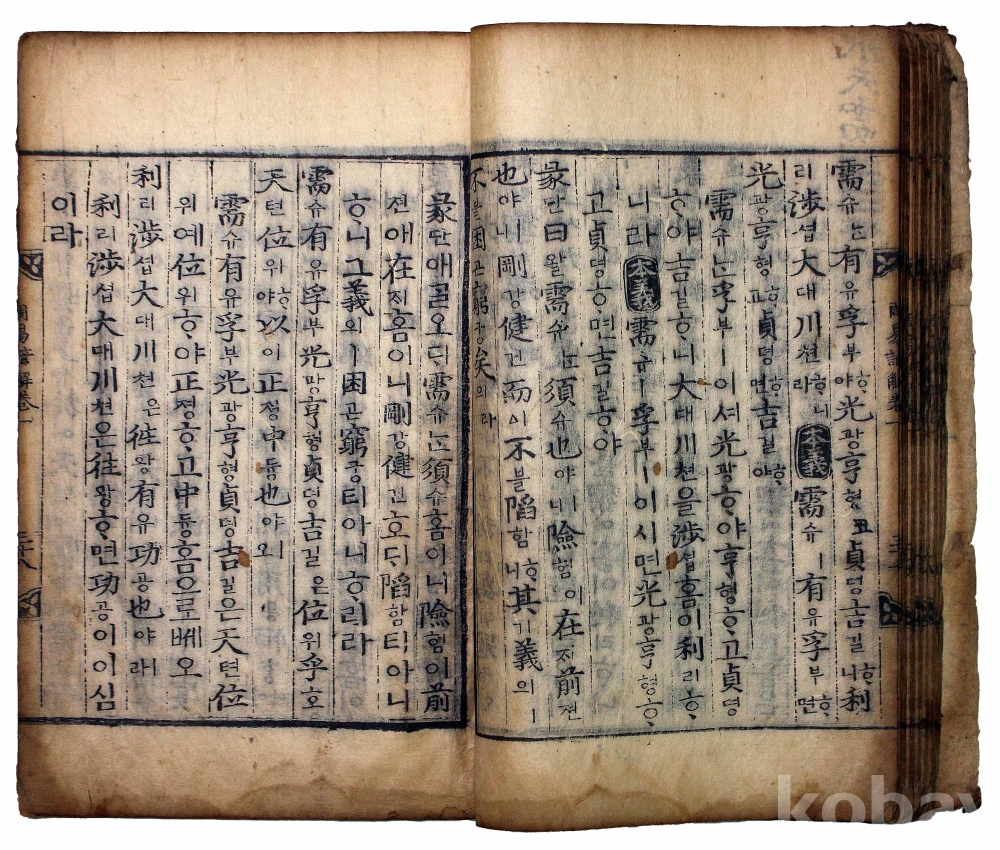 需슈ᄂᆞᆫ有유孚부ᄒᆞ야光광亨형코貞뎡吉길ᄒᆞ니利
리涉셥大대川쳔ᄒᆞ니라本義需슈ㅣ有유孚부ᄒᆞ면
光광亨형ᄒᆞ고貞뎡ᄒᆞ면吉길ᄒᆞ야
需슈ᄂᆞᆫ孚부ㅣ이셔光광ᄒᆞ야亨형ᄒᆞ고貞뎡
ᄒᆞ야吉길ᄒᆞ니大대川쳔을涉셥홈이利리ᄒᆞ
니라本義需슈ㅣ孚부ㅣ이시면光광亨형ᄒᆞ
고貞뎡ᄒᆞ면吉길ᄒᆞ야
彖단曰왈需슈ᄂᆞᆫ須슈也야ㅣ니險험이在ᄌᆡ前젼
也야ㅣ니剛강健건而이不블陷함ᄒᆞ니其기義의ㅣ
不블困곤窮궁矣의라
彖단애ᄀᆞᆯ오ᄃᆡ需슈ᄂᆞᆫ須슈홈이니險험이前
젼애在ᄌᆡ홈이니剛강健건호ᄃᆡ陷함티아니
ᄒᆞ니그義의ㅣ困곤窮궁티아니ᄒᆞ리라
需슈有유孚부光광亨형貞뎡吉길은位위乎호
天텬位위ᄒᆞ야以이正졍中듕也야ㅣ오
需슈有유孚부光광亨형貞뎡吉길은天텬位
위예位위ᄒᆞ야正졍ᄒᆞ고中듕홈으로ᄡᅦ오
利리涉셥大대川쳔은往왕有유功공也야ㅣ라
利리涉셥大대川쳔은往왕ᄒᆞ면功공이이심
이라
周易諺解卷一
kobay